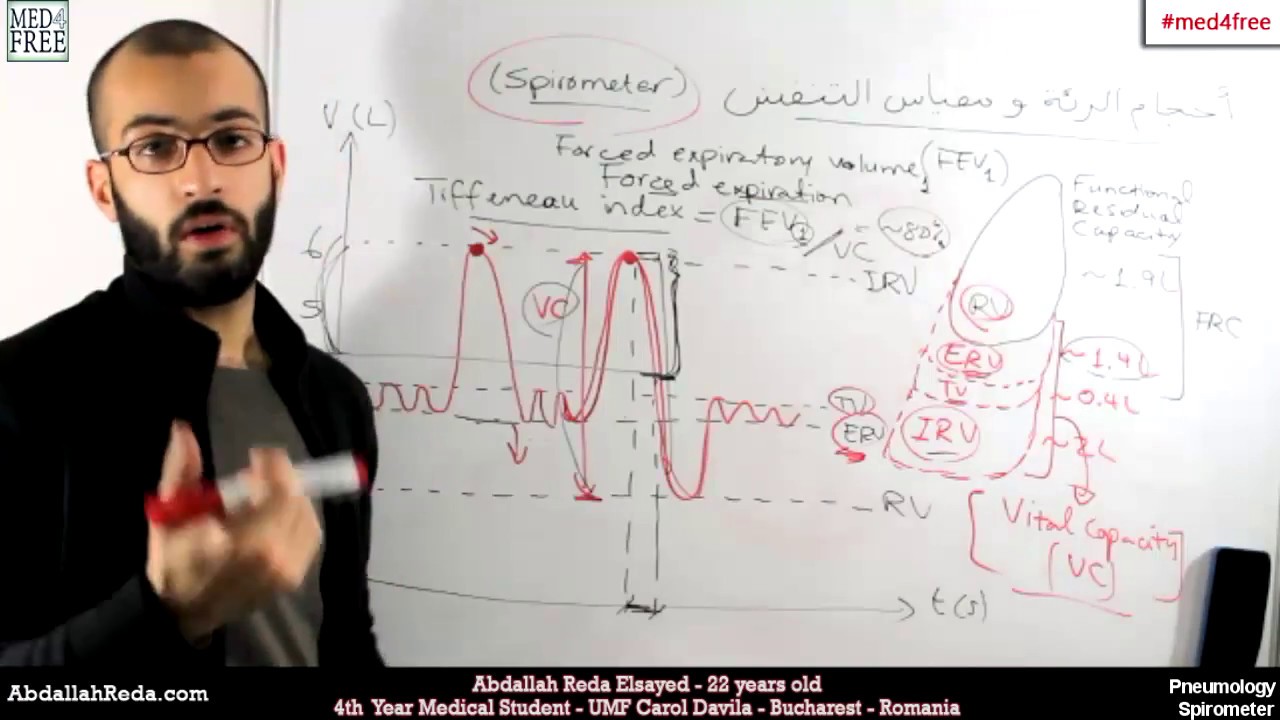 MED4
FREE
#med4free
(Spirometer)
أحجام الرئة و مقياس التنفس
V (L)
Forced expiratory volume1 (FEV1)
Forced expiration
Tiffeneau index = FEV1 / VC = ~80%
Functional
Residual
Capacity
~1.9L
FRC
6
5
VC
IRV
RV
ERV
~1.4L
TV
~0.4L
IRV
~2L
TV
ERV
RV
Vital Capacity
(VC)
t(s)
AbdallahReda.com
Abdallah Reda Elsayed - 22 years old
4th Year Medical Student - UMF Carol Davila - Bucharest - Romania
Pneumology
Spirometer